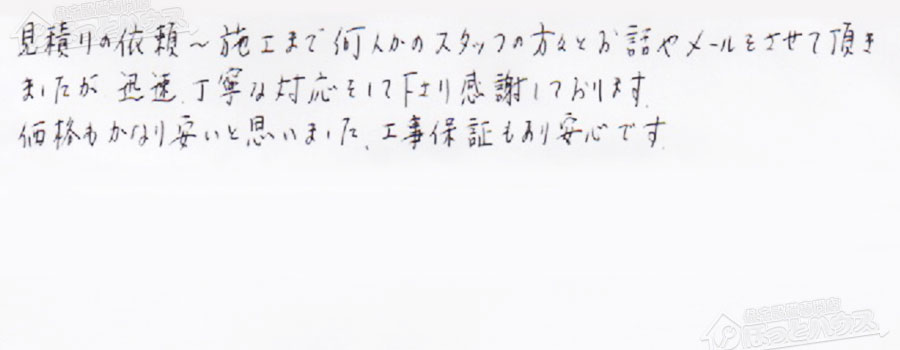 見積りの依頼～施工まで何人かのスタッフの方々とお話やメールをさせて頂き
ましたが 迅速、丁寧な対応をして下さり感謝しております。
価格もかなり安いと思いました、工事保証もあり安心です。
ほっとハウス